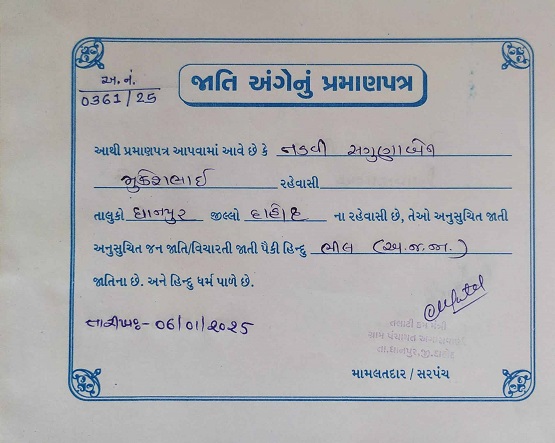 અ.નં.
0361/25
જાતિ અંગેનું પ્રમાણપત્ર
આથી પ્રમાણપત્ર આપવામાં આવે છે કે નડવી સગુણાબેન
મુકેશભાઈ રહેવાસી
તાલુકો ધાનપુર જીલ્લો દાહોદ ના રહેવાસી છે, તેઓ અનુસુચિત જાતી
અનુસુચિત જન જાતિ/વિચારતી જાતી પૈકી હિન્દુ ભીલ (અ.જ.જા.)
જાતિના છે. અને હિન્દુ ધર્મ પાળે છે.
તારીખઃ- 06/01/2025
તલાટી કમ મંત્રી
ગ્રામ પંચાયત
તા.ધાનપુર,જી.દાહોદ
મામલતદાર / સરપંચ